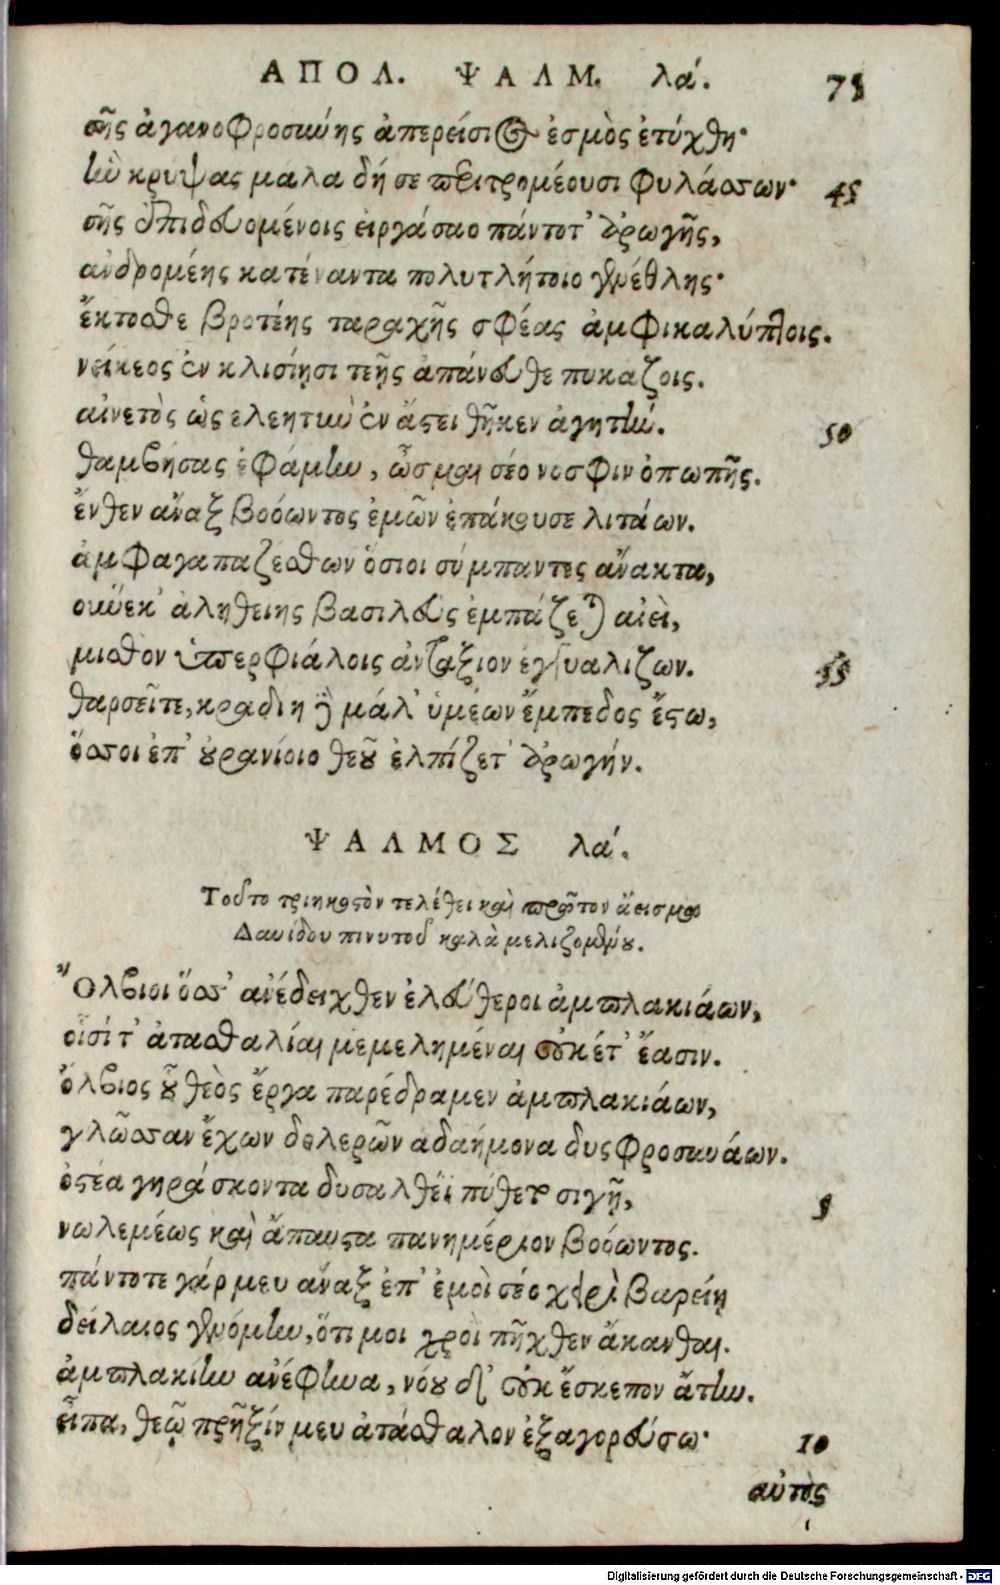 ΑΠΟΛ. ΨΑΛΜ. λά. 75
σῆς ἀγανοφροσύνης ἀπερείσιος ἑσμὸς ἐτύχθη·
ἣν κρύψας μάλα δή σε περιτρομέουσι φυλάσσων· 45
σῆς ἐπιδευομένοις εἰργάσαο πάντοτ' ἀρωγῆς,
ἀνδρομέης κατέναντα πολυτλήτοιο γενέθλης·
ἔκτοσθε βροτέης ταραχῆς σφέας ἀμφικαλύπτοις.
νείκεος ἐν κλισίῃσι τεῇς ἀπάνευθε πυκάζοις.
αἰνετὸς ὡς ἐλεητὺν ἐν ἄστει θῆκεν ἀγητήν. 50
θαμβήσας ἐφάμην, ὦσμαι σέο νόσφιν ὀπωπῆς.
ἔνθεν ἄναξ βοόωντος ἐμῶν ἐπάκουσε λιτάων.
ἀμφαγαπαζέσθων ὅσιοι σύμπαντες ἄνακτα,
οὕνεκ' ἀληθείης βασιλεὺς ἐμπάζεται αἰεὶ,
μισθὸν ὑπερφιάλοις ἀντάξιον ἐγγυαλίζων. 55
θαρσεῖτε, κραδίη δὲ μάλ' ὑμέων ἔμπεδος ἔστω,
ὅσσοι ἐπ' οὐρανίοιο θεοῦ ἐλπίζετ' ἀρωγήν.
ΨΑΛΜΟΣ λά.
Τοῦτο τριηκοστὸν τελέθει καὶ πρῶτον ἄεισμα
Δαυίδου πινυτοῦ καλὰ μελιζομένου.
Ὄλβιοι ὅσσ' ἀνέδειχθεν ἐλεύθεροι ἀμπλακιάων,
οἷσί τ' ἀτασθαλίαι μεμελημέναι οὐκέτ' ἔασιν.
ὄλβιος οὗ θεὸς ἔργα παρέδραμεν ἀμπλακιάων,
γλῶσσαν ἔχων δολερῶν ἀδαήμονα δυσφροσυνάων.
ὀστέα γηράσκοντα δυσαλθέϊ πύθεται σιγῇ, 5
νωλεμέως καὶ ἄπαυστα πανημέριον βοόωντος.
πάντοτε γάρ μευ ἄναξ ἐπ' ἐμοὶ σέο χειρὶ βαρείῃ
δείλαιος γενόμην, ὅτι μοι χροῒ πῆχθεν ἄκανθαι.
ἀμπλακίην ἀνέφηνα, νόου δ' οὐκ ἔσκεπον ἄτην.
εἶπα, θεῷ πρῆξίν μευ ἀτάσθαλον ἐξαγορεύσω· 10
αὐτὸς
Digitalisierung gefördert durch die Deutsche Forschungsgemeinschaft - DFG